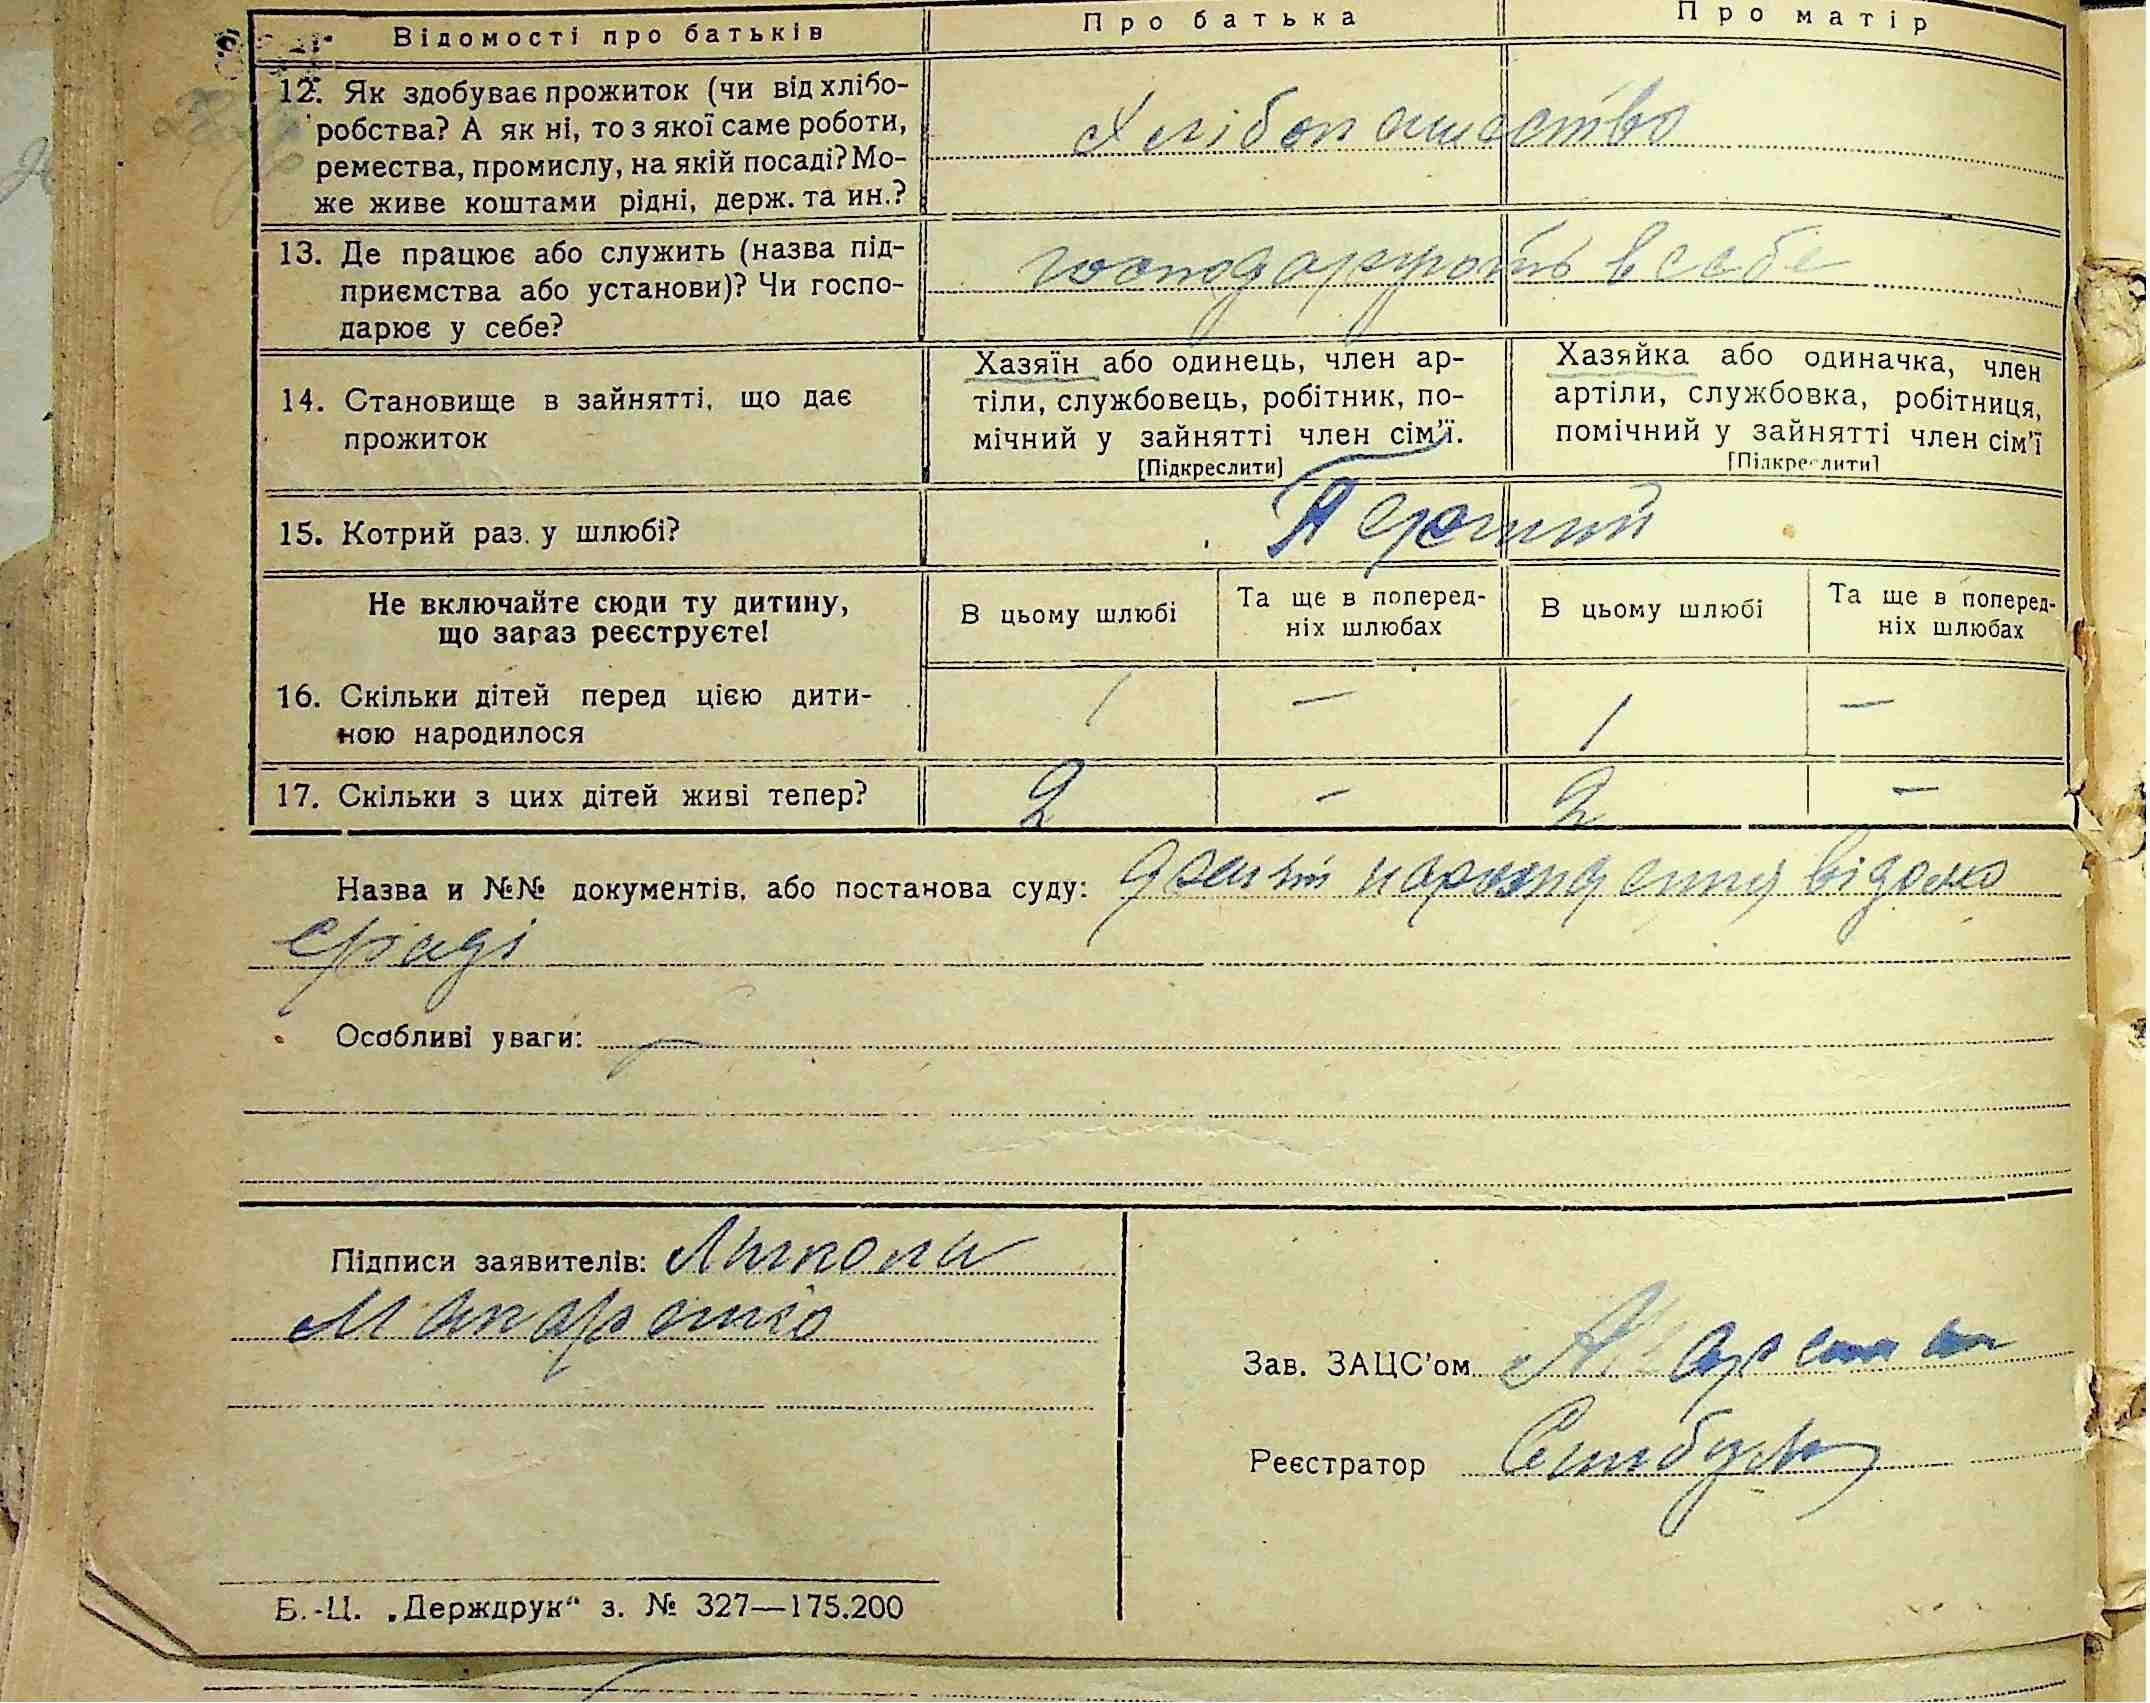 Відомості про батьків Про батька Про матір
12. Як здобуває прожиток (чи від хлібо-
робства? А як ні, то з якої саме роботи,
ремества, промислу, на якій посаді? Мо-
же живе коштами рідні, держ. та ин.?
Хлібопашество
13. Де працює або служить (назва під-
приємства або установи)? Чи госпо-
дарює у себе?
господарують в себе
14. Становище в зайнятті, що дає
прожиток
Хазяїн або одинець, член ар-
тіли, службовець, робітник, по-
мічний у зайнятті член сім'ї.
[Підкреслити]
Хазяйка або одиначка, член
артіли, службовка, робітниця,
помічний у зайнятті член сім'ї
[Підкреслити]
15. Котрий раз у шлюбі? Перший
Не включайте сюди ту дитину,
що зараз реєструєте!
В цьому шлюбі
Та ще в поперед-
ніх шлюбах
В цьому шлюбі
Та ще в поперед-
ніх шлюбах
16. Скільки дітей перед цією дити-
ною народилося
1 — 1 —
17. Скільки з цих дітей живі тепер? 2 — 2 —
Назва и №№ документів, або постанова суду: народження відомо
с/раді
Особливі уваги: —
Підписи заявителів: Микола
Макаренко
Зав. ЗАЦС'ом
Реєстратор
Б.-Ц. „Держдрук“ з. № 327—175.200